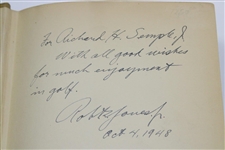 For Richard H. Semple, Jr
With all good wishes
for much enjoyment
in golf.
Robt T Jones Jr.
Oct 4, 1948